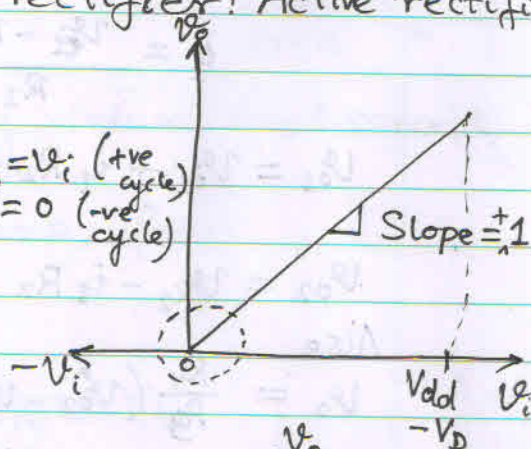 rectifier! Active rectifi
v_o
= v_i (+ve cycle)
= 0 (-ve cycle)
Slope = +1
-v_i
0
Vdd - V_D
v_i
v_o